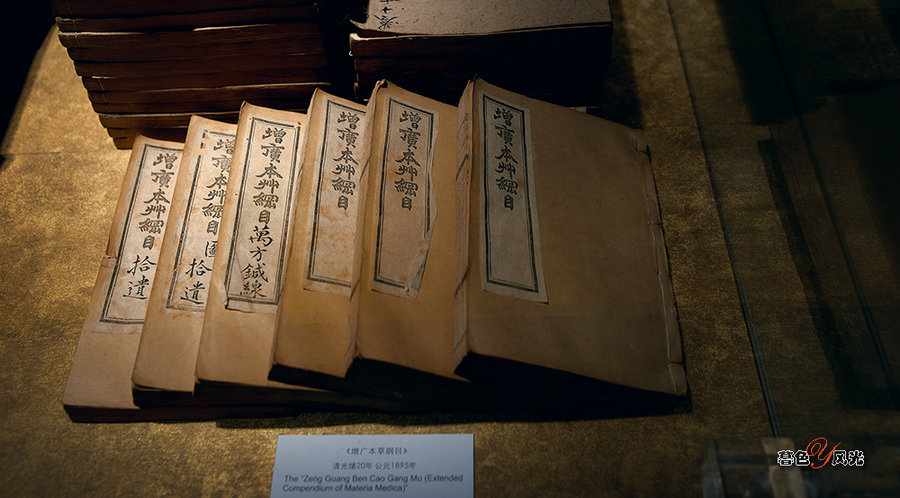 增廣本艸綱目
拾遺
增廣本艸綱目
圖
拾遺
增廣本艸綱目
萬方鍼線
增廣本艸綱目
增廣本艸綱目
增廣本艸綱目
《增广本草纲目》
清光绪20年 公元1895年
The "Zeng Guang Ben Cao Gang Mu (Extended
Compendium of Materia Medica)"
暮色Y风光